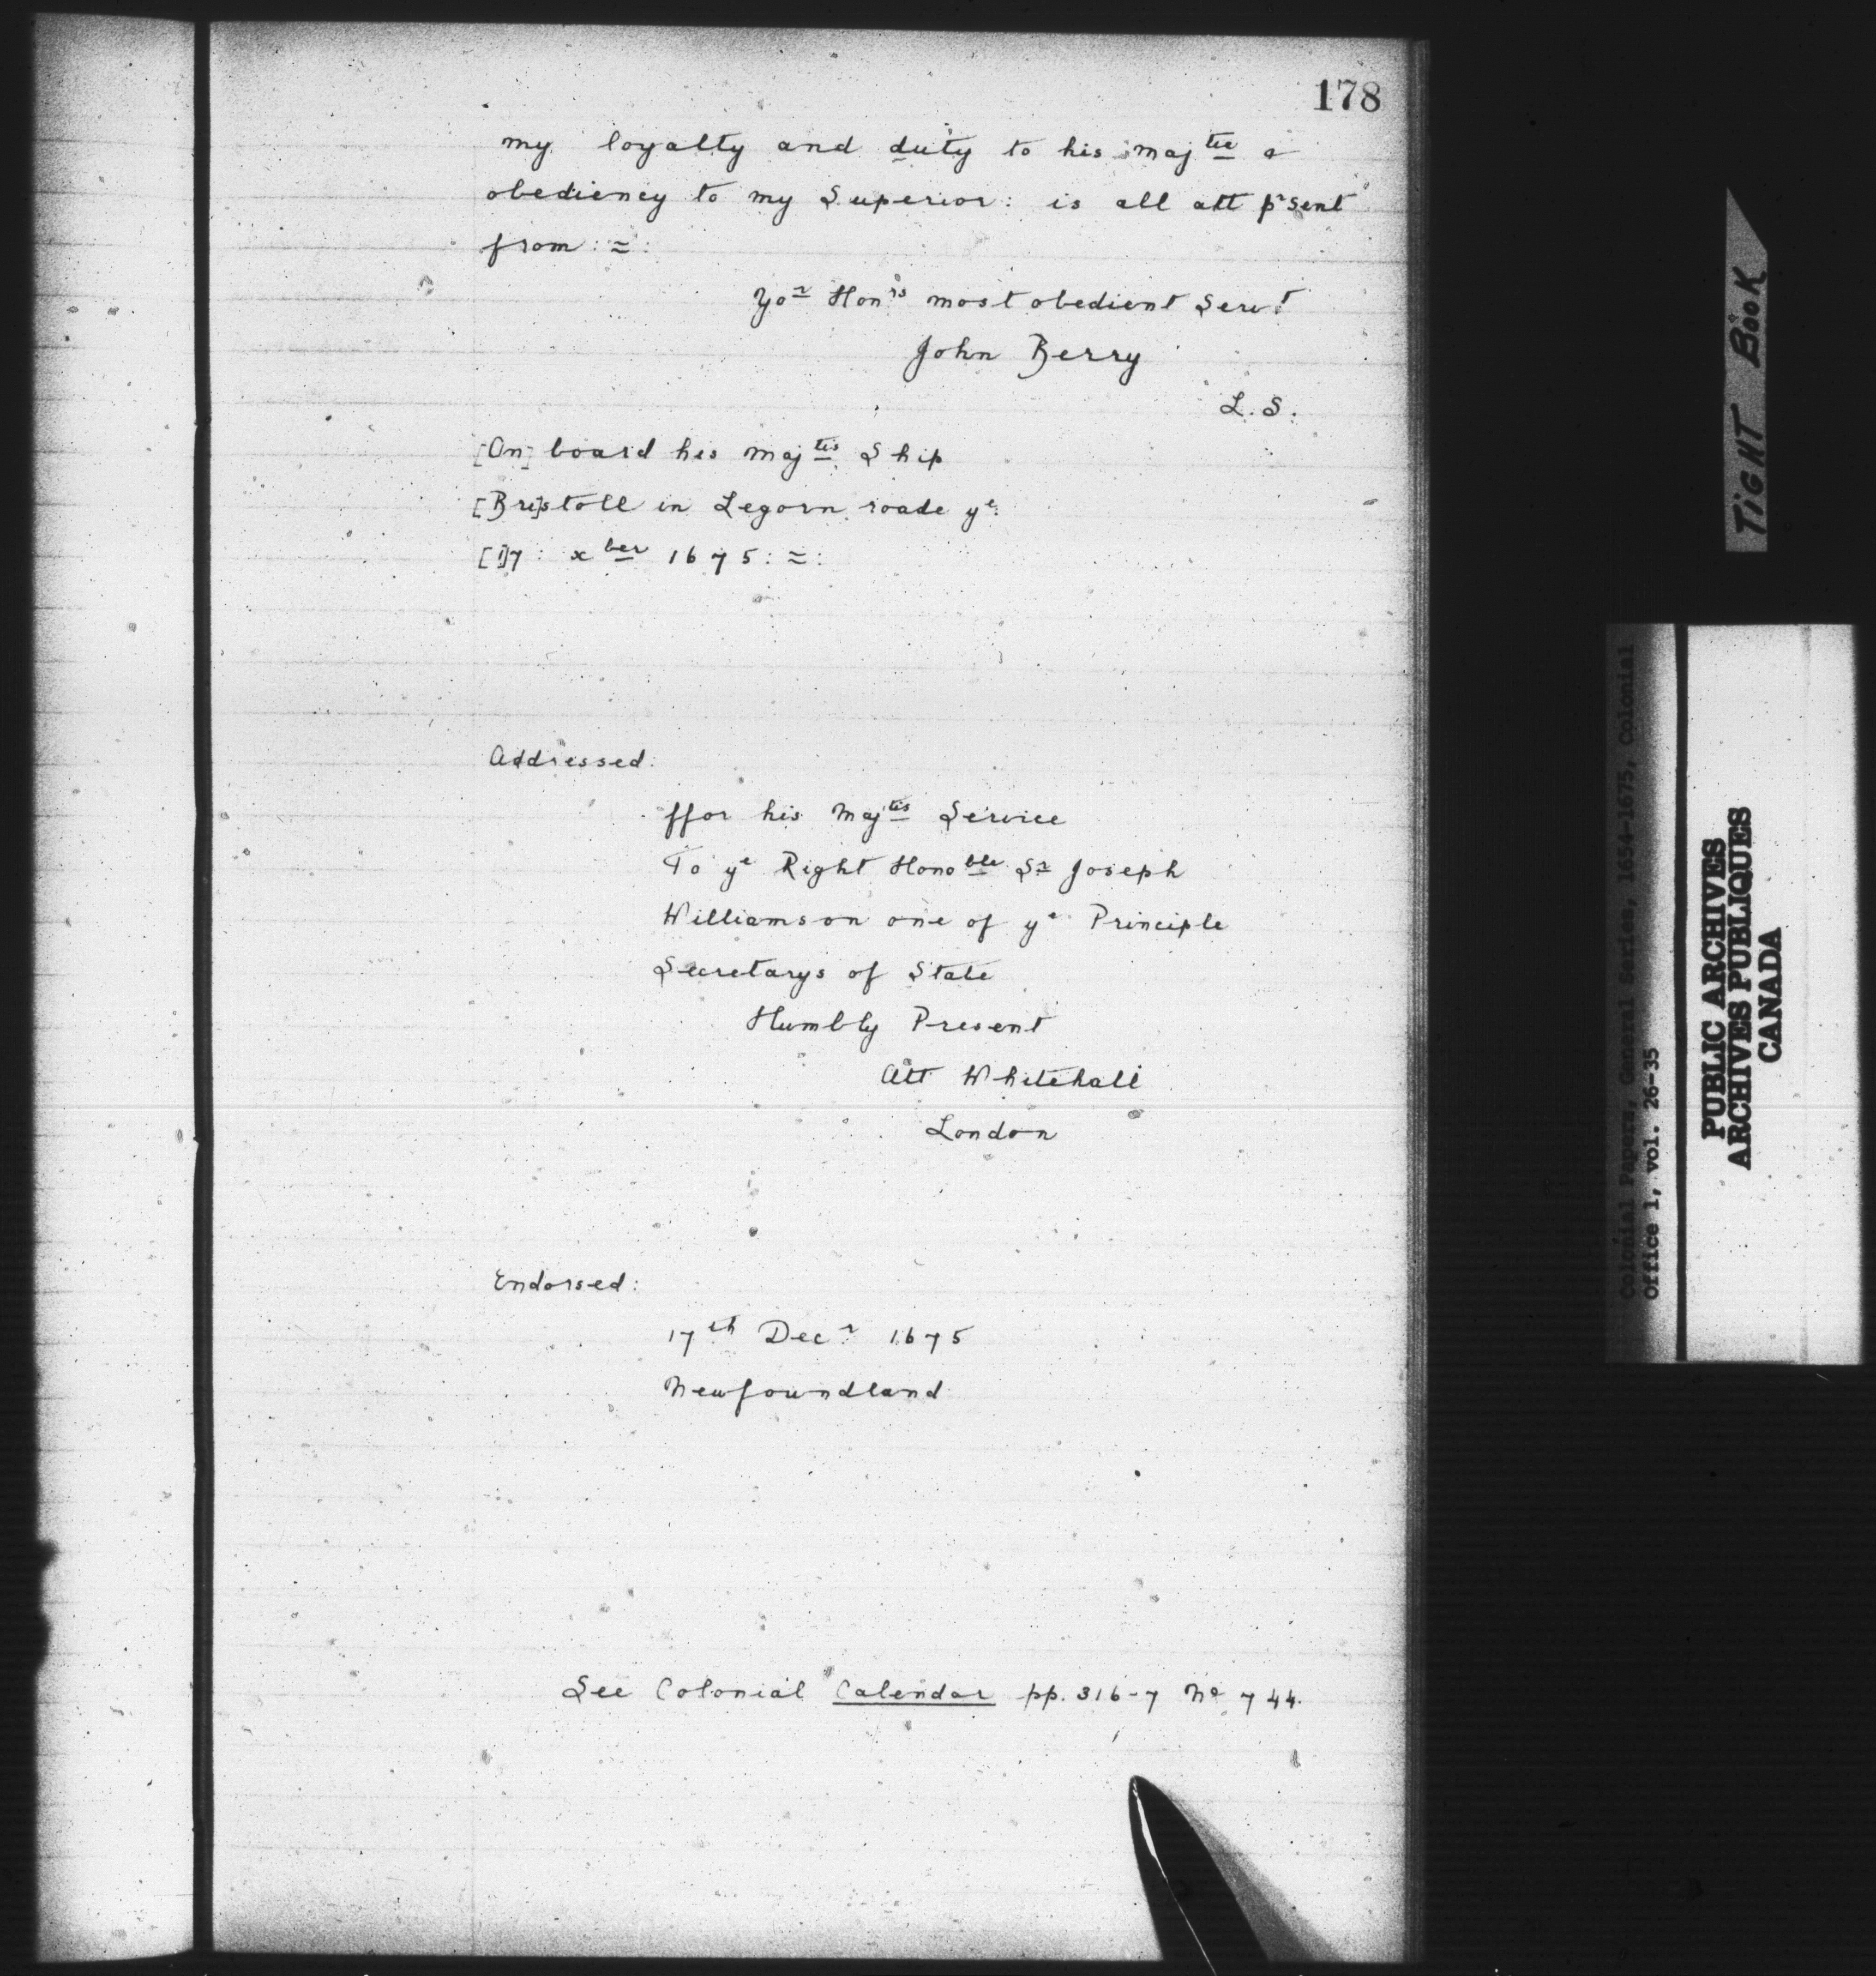 178
my loyalty and duty to his maj tie &
obediency to my Superior: is all att p'sent
from: =:
Yo r Hon rs most obedient Serv t
John Berry
L. S.
[On] board his maj tis Ship
[Bri]stoll in Legorn roade y e:
[1]7: x ber 1675: =:
Addressed:
ffor his Maj tis Service
To y e Right Hono ble S r Joseph
Williamson one of y e Principle
Secretarys of State
Humbly Present
Att Whitehall
London
Endorsed:
17 th Dec r 1675
Newfoundland
See Colonial Calendar pp. 316-7 No 744.
TIGHT BOOK
Colonial Papers, General Series, 1654-1675, Colonial
Office 1, vol. 26-35
PUBLIC ARCHIVES
ARCHIVES PUBLIQUES
CANADA